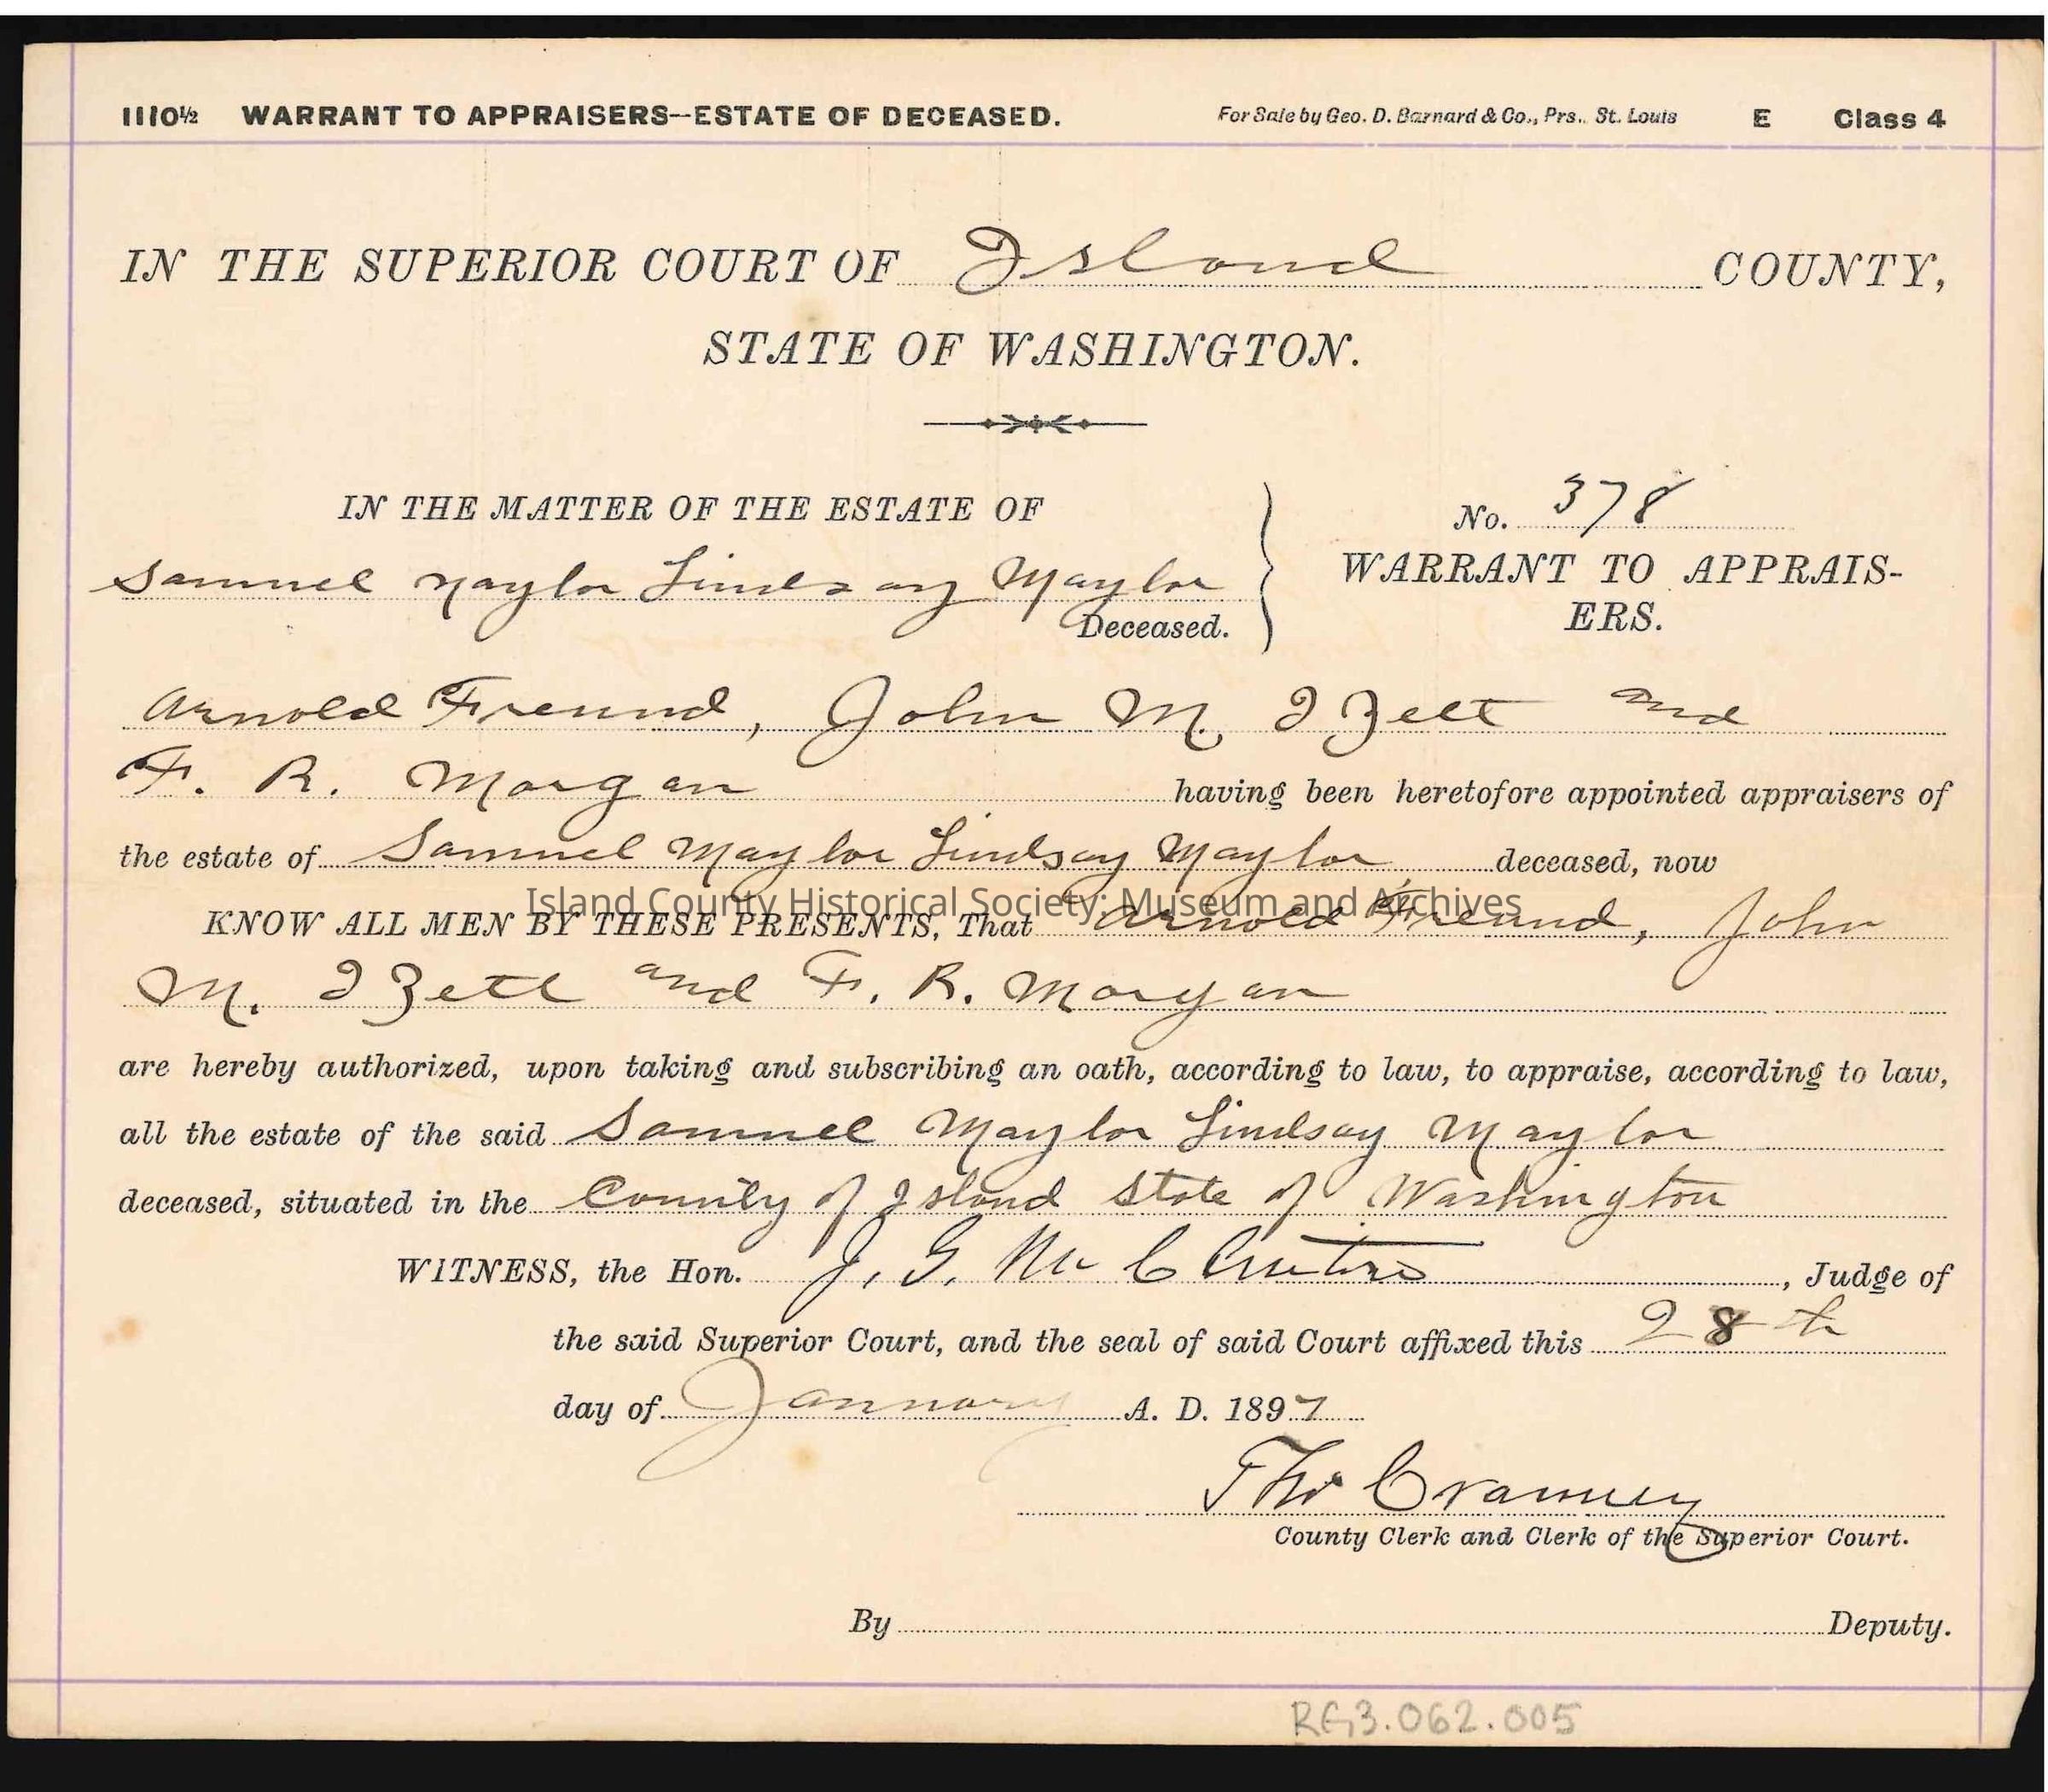 1110½ WARRANT TO APPRAISERS—ESTATE OF DECEASED. For Sale by Geo. D. Barnard & Co., Prs., St. Louis E Class 4
IN THE SUPERIOR COURT OF Island COUNTY,
STATE OF WASHINGTON.
IN THE MATTER OF THE ESTATE OF
Samuel Maylor Lindsay Maylor
Deceased.
No. 378
WARRANT TO APPRAIS-
ERS.
Arnold Freund, John M. Izett and
F. R. Morgan having been heretofore appointed appraisers of
the estate of Samuel Maylor Lindsay Maylor deceased, now
Island County Historical Society: Museum and Archives
KNOW ALL MEN BY THESE PRESENTS, That Arnold Freund, John
M. Izett and F. R. Morgan
are hereby authorized, upon taking and subscribing an oath, according to law, to appraise, according to law,
all the estate of the said Samuel Maylor Lindsay Maylor
deceased, situated in the County of Island State of Washington
WITNESS, the Hon. J. G. , Judge of
the said Superior Court, and the seal of said Court affixed this 28th
day of January A. D. 1897
Tho Cranney
County Clerk and Clerk of the Superior Court.
By Deputy.
RG3.062.005